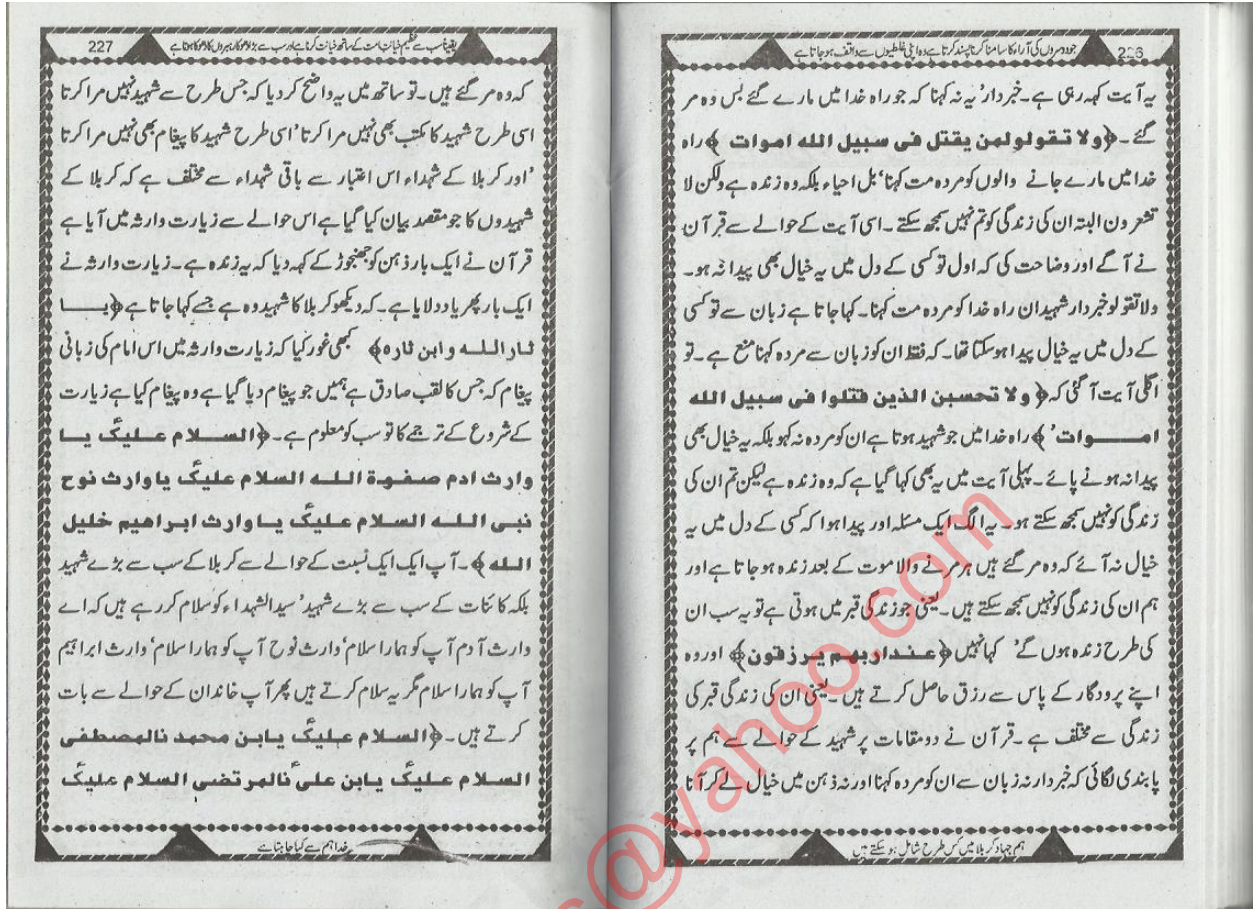 جو دوسروں کی آراء کا سامنا کرنا پسند کرتا ہے وہ اپنی غلطیوں سے واقف ہو جاتا ہے
226
یہ آیت کہہ رہی ہے۔ خبردار' یہ نہ کہنا کہ جو راہ خدا میں مارے گئے بس وہ مر
گئے۔ ﴿ولا تقولو لمن یقتل فی سبیل الله اموات ﴾ راہ
خدا میں مارے جانے والوں کو مردہ مت کہنا' بل احیاء بلکہ وہ زندہ ہے ولکن لا
تشعرون البتہ ان کی زندگی کو تم نہیں سمجھ سکتے۔ اسی آیت کے حوالے سے قرآن
نے آگے اور وضاحت کی کہ اول تو کسی کے دل میں یہ خیال بھی پیدا نہ ہو۔
ولا تقولو خبردار شہیدان راہ خدا کو مردہ مت کہنا۔ کہا جاتا ہے زبان سے تو کسی
کے دل میں یہ خیال پیدا ہو سکتا تھا۔ کہ فقط ان کو زبان سے مردہ کہنا منع ہے۔ تو
اگلی آیت آ گئی کہ ﴿ ولا تحسبن الذین قتلوا فی سبیل الله
امــوات' ﴾ راہ خدا میں جو شہید ہوتا ہے ان کو مردہ نہ کہو بلکہ یہ خیال بھی
پیدا نہ ہونے پائے۔ پہلی آیت میں یہ بھی کہا گیا ہے کہ وہ زندہ ہے لیکن تم ان کی
زندگی کو نہیں سمجھ سکتے ہو۔ یہ الگ ایک مسئلہ اور پیدا ہوا کہ کسی کے دل میں یہ
خیال نہ آئے کہ وہ مر گئے ہیں ہر مرنے والا موت کے بعد زندہ ہو جاتا ہے اور
ہم ان کی زندگی کو نہیں سمجھ سکتے ہیں۔ یعنی جو زندگی قبر میں ہوتی ہے تو یہ سب ان
کی طرح زندہ ہوں گے' کہا نہیں ﴿عندار بهم یرزقون﴾ اور وہ
اپنے پرودگار کے پاس سے رزق حاصل کرتے ہیں۔ یعنی ان کی زندگی قبر کی
زندگی سے مختلف ہے۔ قرآن نے دو مقامات پر شہید کے حوالے سے ہم پر
پابندی لگائی کہ خبردار نہ زبان سے ان کو مردہ کہنا اور نہ ذہن میں خیال لے کر آنا
ہم جہاد کربلا میں کس طرح شامل ہو سکتے ہیں
یقیناً سب سے عظیم خیانت امت کے ساتھ خیانت کرنا ہے اور سب سے بڑا دھوکا رہبروں کا دھوکا ہوتا ہے
227
کہ وہ مر گئے ہیں۔ تو ساتھ میں یہ واضح کر دیا کہ جس طرح سے شہید نہیں مرا کرتا
اسی طرح شہید کا مکتب بھی نہیں مرا کرتا' اسی طرح شہید کا پیغام بھی نہیں مرا کرتا
'اور کربلا کے شہداء اس اعتبار سے باقی شہداء سے مختلف ہے کہ کربلا کے
شہیدوں کا جو مقصد بیان کیا گیا ہے اس حوالے سے زیارت وارثہ میں آیا ہے
قرآن نے ایک بار ذہن کو جھنجوڑ کے کہہ دیا کہ یہ زندہ ہے۔ زیارت وارثہ نے
ایک بار پھر یاد دلایا ہے۔ کہ دیکھو کربلا کا شہید وہ ہے جسے کہا جاتا ہے ﴿یــا
ثار الله وابن ثاره﴾ کبھی غور کیا کہ زیارت وارثہ میں اس امام کی زبانی
پیغام کہ جس کا لقب صادق ہے ہمیں جو پیغام دیا گیا ہے وہ پیغام کیا ہے زیارت
کے شروع کے ترجمے کا تو سب کو معلوم ہے۔ ﴿السلام علیک یا
وارث ادم صفوة الله السلام علیک یاوارث نوح
نبی الله السلام علیک یاوارث ابراهیم خلیل
الله﴾۔ آپ ایک ایک نسبت کے حوالے سے کربلا کے سب سے بڑے شہید
بلکہ کائنات کے سب سے بڑے شہید' سید الشہداء کو سلام کر رہے ہیں کہ اے
وارث آدم آپ کو ہمارا سلام' وارث نوح آپ کو ہمارا سلام' وارث ابراہیم
آپ کو ہمارا سلام مگر یہ سلام کرتے ہیں پھر آپ خاندان کے حوالے سے بات
کرتے ہیں۔ ﴿السلام علیک یابن محمد نالمصطفی
السلام علیک یابن علی نالمرتضی السلام علیک
خدا ہم سے کیا چاہتا ہے
s@yahoo.com